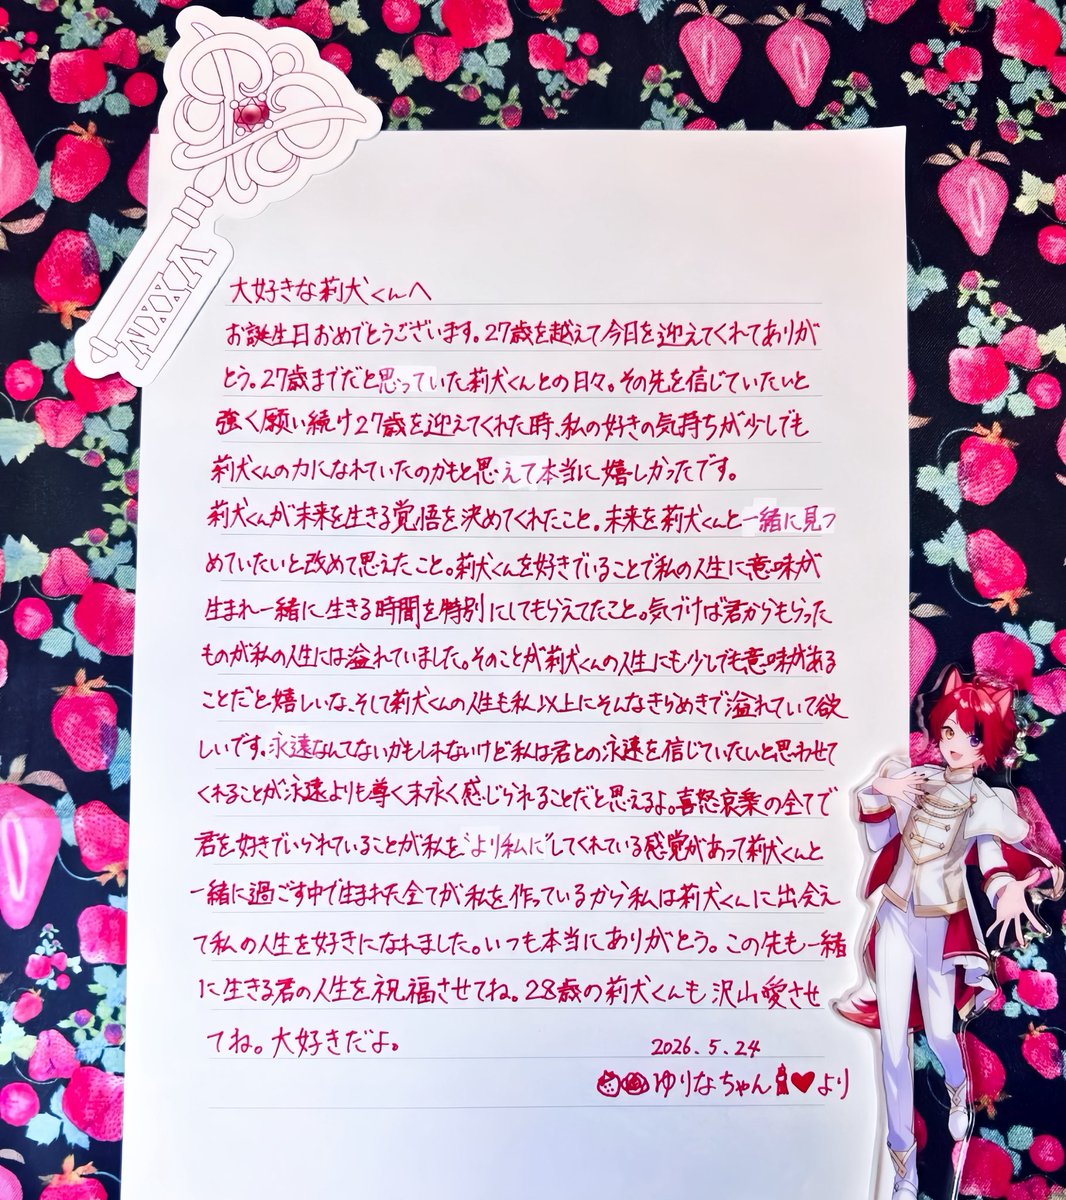 VXXIV
大好きな莉犬くんへ
お誕生日おめでとうございます。27歳を越えて今日を迎えてくれてありが
とう。27歳までだと思っていた莉犬くんとの日々。その先を信じていたいと
強く願い続け27歳を迎えてくれた時、私の好きの気持ちが少しでも
莉犬くんの力になれていたのかもと思えて本当に嬉しかったです。
莉犬くんが未来を生きる覚悟を決めてくれたこと。未来を莉犬くんと一緒に見つ
めていたいと改めて思えたこと。莉犬くんを好きでいることで私の人生に意味が
生まれ一緒に生きる時間を特別にしてもらえてたこと。気づけば君からもらった
ものが私の人生には溢れていました。そのことが莉犬くんの人生にも少しでも意味がある
ことだと嬉しいな、そして莉犬くんの人生も私以上にそんなきらめきで溢れていて欲
しいです。永遠なんてないかもしれないけど私は君との永遠を信じていたいと思わせて
くれることが永遠よりも尊く末永く感じられることだと思えるよ。喜怒哀楽の全てで
君を好きでいられていることが私を"より私に"してくれている感覚があって莉犬くんと
一緒に過ごす中で生まれた全てが私を作っているから私は莉犬くんに出会え
て私の人生を好きになれました。いつも本当にありがとう。この先も一緒
に生きる君の人生を祝福させてね。28歳の莉犬くんも沢山愛させ
てね。大好きだよ。
2026.5.24
ゆりなちゃん♥より